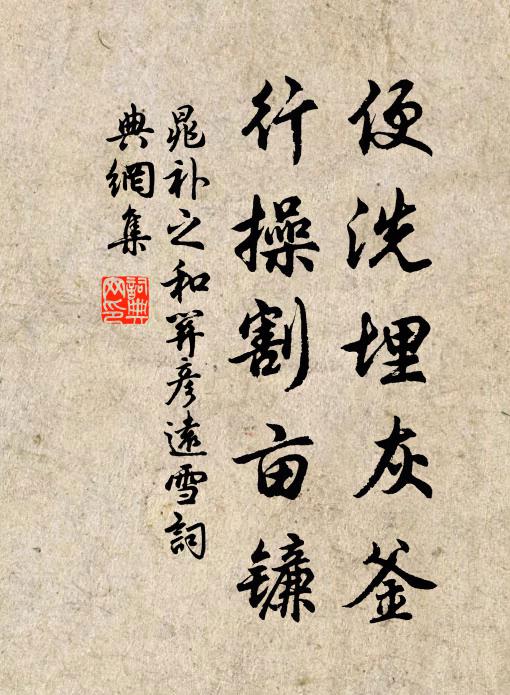 便洗埋灰釜
行操割亩镰
晁补之和关彦远雪詞
典網集
詞典
网印